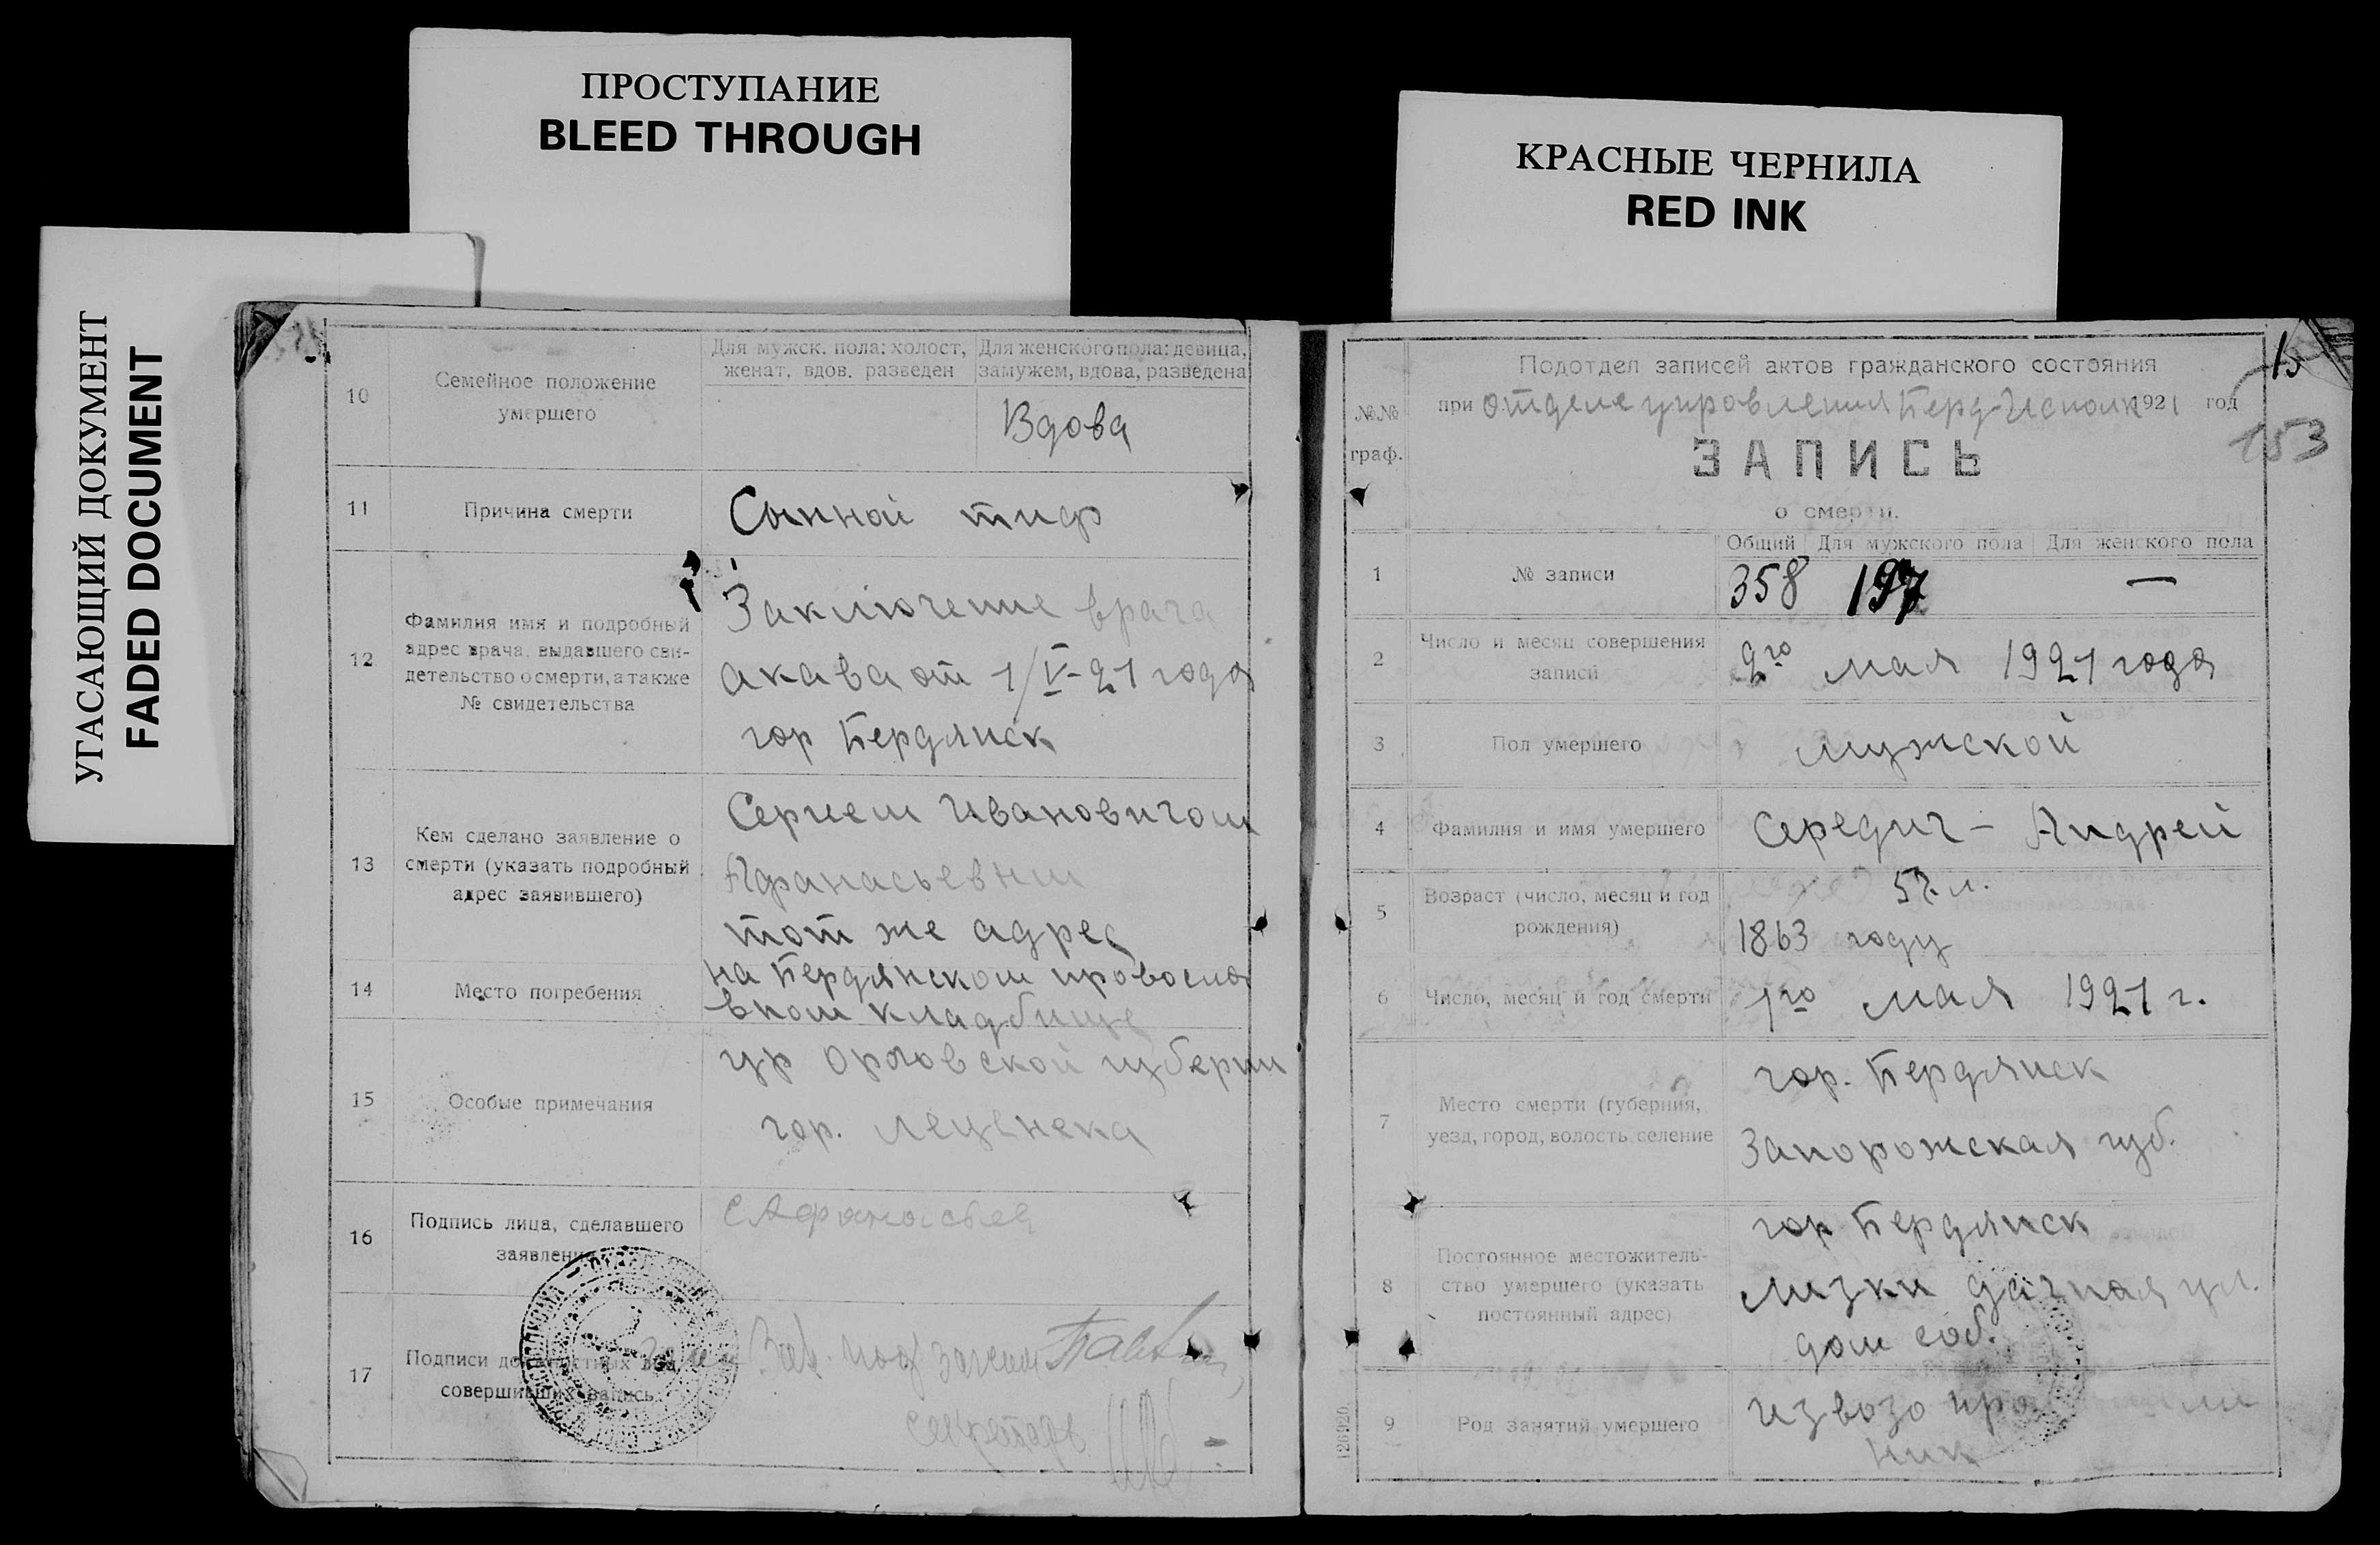 ПРОСТУПАНИЕ
BLEED THROUGH
КРАСНЫЕ ЧЕРНИЛА
RED INK
УГАСАЮЩИЙ ДОКУМЕНТ
FADED DOCUMENT
10
Семейное положение
умершего
Для мужск. пола: холост,
женат, вдов. разведен
Для женского пола: девица,
замужем, вдова, разведена
Вдова
11
Причина смерти
Сыпной тиф
12
Фамилия имя и подробный
адрес врача, выдавшего сви-
детельство о смерти, а также
№ свидетельства
Заключение врача
акава от 1/V-21 года
гор Бердянск
13
Кем сделано заявление о
смерти (указать подробный
адрес заявившего)
Сергеем Ивановичом
Афанасьевым
тот же адрес
14
Место погребения
на Бердянском провосла
вном кладбище
15
Особые примечания
ур Орловской губерни
гор.
16
Подпись лица, сделавшего
заявление
С Афанасьев
17
Подписи должностных лиц,
совершивших запись
Зав. под
секретарь
15
153
№№
граф.
Подотдел записей актов гражданского состояния
при отделе упровления Берд-Исполк 1921 год
ЗАПИСЬ
о смерти.
Общий
Для мужского пола
Для женского пола
1
№ записи
358 197 —
2
Число и месяц совершения
записи
2го мая 1921 года
3
Пол умершего
мужской
4
Фамилия и имя умершего
Середич - Андрей
5
Возраст (число, месяц и год
рождения)
57 л.
1863 году
6
Число, месяц и год смерти
1го мая 1921 г.
7
Место смерти (губерния,
уезд, город, волость, селение
гор. Бердянск
Запорожская губ.
8
Постоянное местожитель-
ство умершего (указать
постоянный адрес)
гор Бердянск
лизки дачная ул.
дом соб.
9
Род занятий умершего
извозо
ник
126920